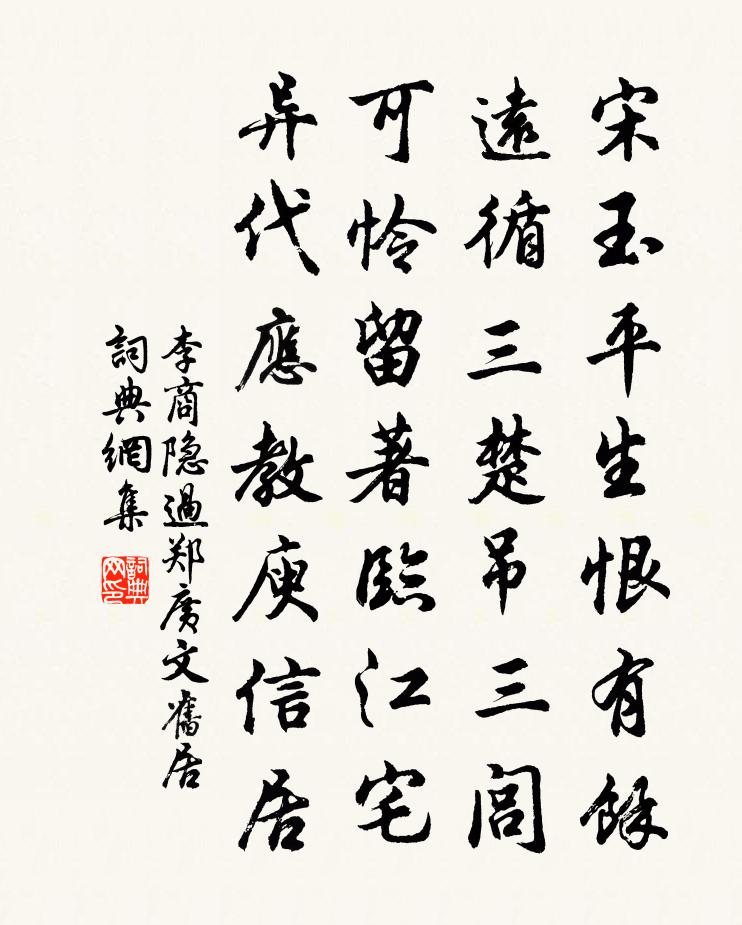 宋玉平生恨有餘
遠循三楚吊三閭
可怜留著臨江宅
异代應教庾信居
李商隐過郑廣文舊居
詞典網集
詞典网印